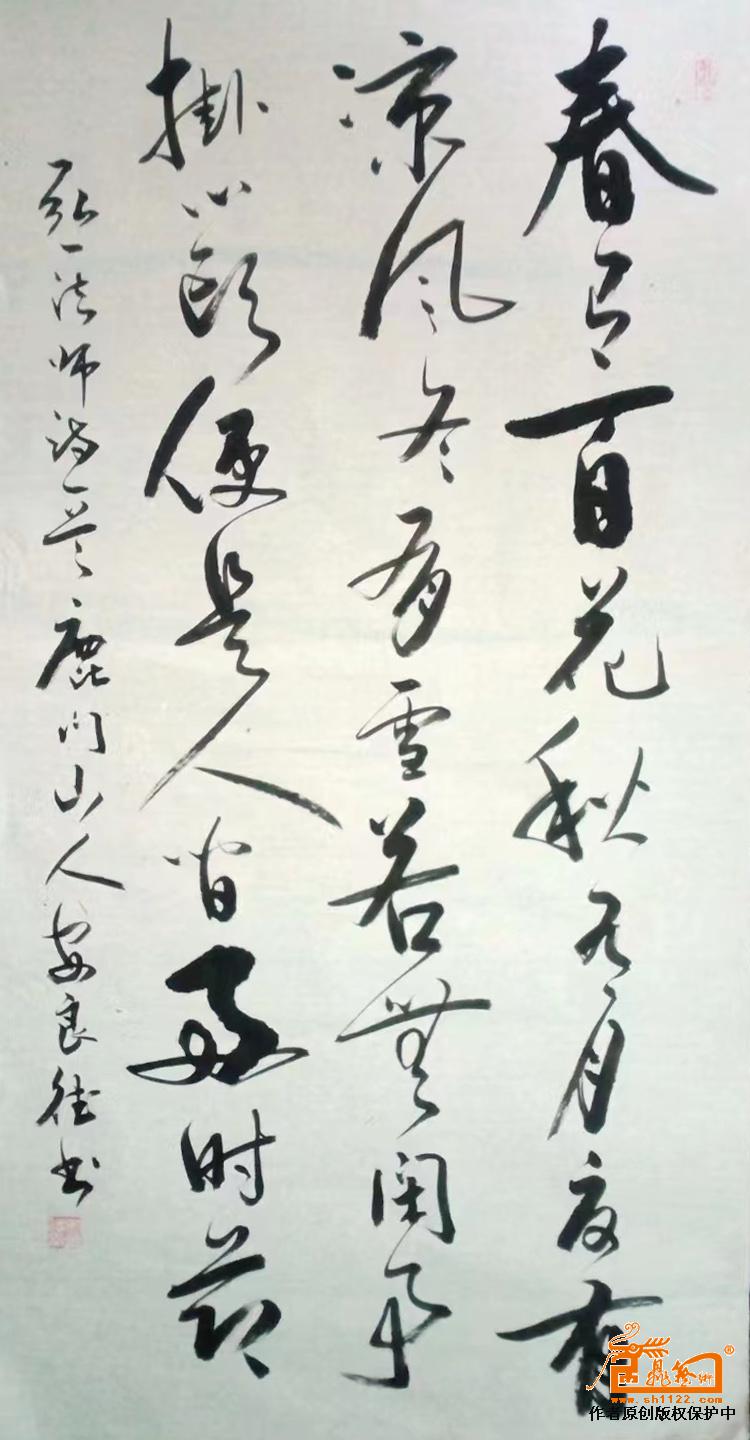 春有百花秋有月夏有
凉风冬有雪若無闲事
掛心头便是人间好时节
弘一法师诗一首鹿门山人安良德书
www.sh1122.com
作者原创版权保护中